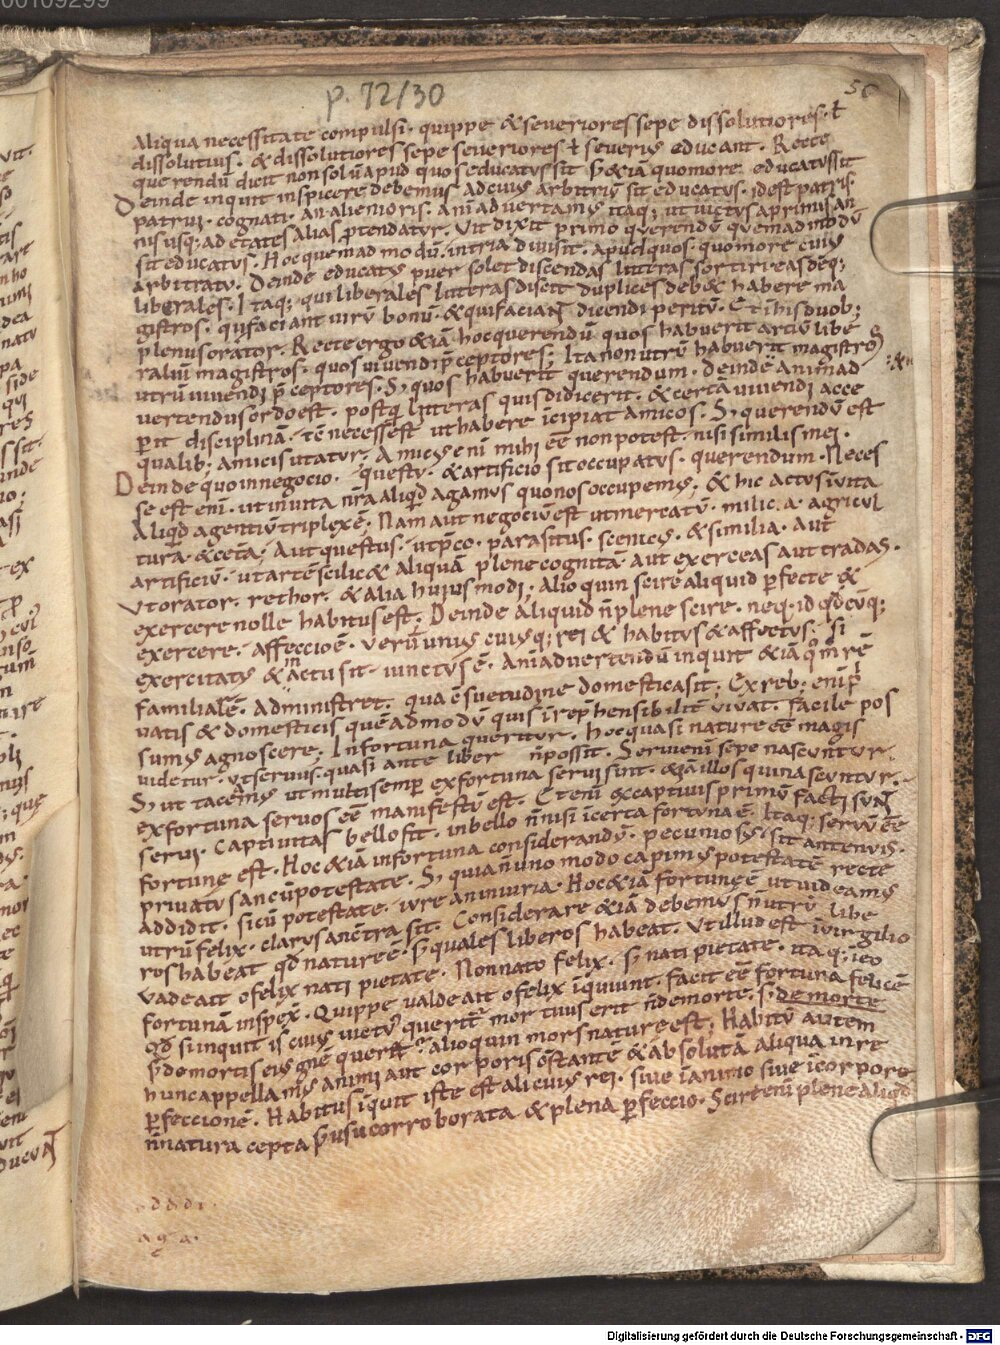 00109299
p. 72/30
56
aliqua necessitate compulsi · quippe & severiores sepe dissolutiores · ł
dissolutius · & dissolutiores sepe severiores ł severius educant · Recte
querendū dicit non solū apud quos educatus sit sꝫ &iā quo more educatus sit
Deinde inquit inspicere debemus ad cuius arbitriū sit educatus · id est patris
patrui · cognati · an alienioris · Animadvertamus itaq; ut victus a primis an
nis usq; ad etates alias ptendatur · Ut dixit primo querendū quemadmodū
sit educatus · Hoc quemadmodū · in tria divisit · apud quos · quo more cuius
arbitratu · Deinde educatus puer solet discendas litteras sortiri easdēq;
liberales · Itaq; qui liberales litteras discit duplices deb& habere ma
gistros · qui faciant virū bonū · & qui faciant dicendi peritū · Et ī his duob;
plenus orator · Recte ergo &iā hoc querendū quos habuerit artiū libe
raliū magistros · quos vivendi pceptores; Ita non utrū habuerit magistros
utrū vivendi pceptores · Sꝫ quos habuerit querendum · deinde animad
vertendus ordo est · postq litteras quis didicerit · & certa vivendi acce
perit disciplinā · tē necesse est ut habere īcipiat amicos · Sꝫ querendū est
qualib; amicis utatur · Amicus enī mihi eē non potest · nisi similis mei ·
Deinde quo in negocio · questu · & artificio sit occupatus · querendum · Neces
se est enī · ut in vita nr̄a aliqd agamus quo nos occupemus; & hic actus ī vita
aliqd agentiū triplex ē; Nam aut negociū est ut mercatū · milicia · agricul
tura · & ceta; Aut questus · ut pco · parasitus · scenicus · & similia · Aut
artificiū · ut artē scilic& aliquā plene cognitā aut exerceas aut tradas ·
Ut orator · rethor · & alia huiusmodi; alioquin scire aliquid pfecte &
exercere nolle habitus est; Deinde aliquid n̄ plene scire · neq; id qdcūq;
exercere · affeccio ē · verū unius cuiusq; rei & habitus & affectus · si
exercitatus & in actu sit · iunctus ē · Animadvertendū inquit &iā qm̄ rē
familiarē · administret · qua c̄suetudine domestica sit; Ex reb; enī pri
vatis & domesticis quēadmodū quis īrephensibilit vivat · facile pos
sumus agnoscere; In fortuna queritur · hoc quasi nature eē magis
videtur · ut servus · quasi ante liber n̄ possit · Servi enī sepe nascuntur ·
Sꝫ ut taceamus ut multi semp ex fortuna servi sint · &iā illos qui nascuntur
ex fortuna servos eē manifestū est · Etenī ex captivis primū facti sunt
servi · Captivitas bello fit · in bello n̄ nisi īcerta fortuna ē · Itaq; servū eē
fortune est · Hoc &iā in fortuna considerandū · pecuniosus sit an tenuis ·
privatus an cū potestate · Sꝫ quia n̄ uno modo capimus potestatē recte
addidit · sicū potestate · iure an iniuria · Hoc &iā fortune ē ut videamus
utrū felix · clarus an c̄tra sit · Considerare &iā debemus n̄ utrū libe
ros habeat qd nature ē · sꝫ quales liberos habeat · Ut illud est ī virgilio
Vade ait o felix nati pietate · Non nato felix · sꝫ nati pietate · itaq; ī eo
fortunā inspex · Quippe valde ait o felix īquiunt · facit eē fortuna felicē
qd si inquit is cuius victus queritur mortuus erit n̄ de morte · sꝫ de morte
sꝫ de mortis eius gn̄e querit · alioquin mors nature est; Habitū autem
hunc appellamus animi aut corporis c̄stantē & absolutā aliqua in re
pfeccionē · Habitus īquit iste est alicuius rei · sive ī animo sive ī corpore
n̄ natura cepta sꝫ usu corroborata & plena pfeccio · Scire enī plene aliqd
Digitalisierung gefördert durch die Deutsche Forschungsgemeinschaft - DFG